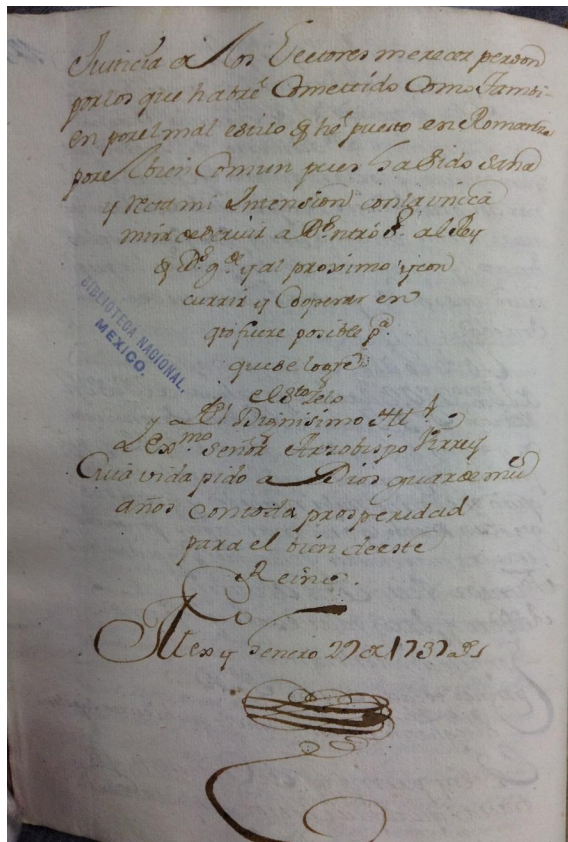 Justicia a los Lectores merecer perdon
por los que habrè Comettido Como Tambi-
en por el mal estilo q̃ hè puesto en Romance
por el bien Comun pues ha sido sana
y recta mi Intension con la unica
mira de servir a Dˢ ntrô Sʳ al Rey
q̃ Dˢ gᵈᵉ y al proximo y con
currir y Coperar en
qto fuere posible pᵃ
que se logre
el Sᵗᵒ Zelo
y Del Dignisimo Illᵐᵒ
Exᵐᵒ Señor Arzobispo Virrey
Cuia vida pido a Dios guarde mil
años con toda prosperidad
para el bien de este
Reino.
Mexᶜᵒ y Henero 29 de 1737 aˢ
BIBLIOTECA NACIONAL.
MEXICO.